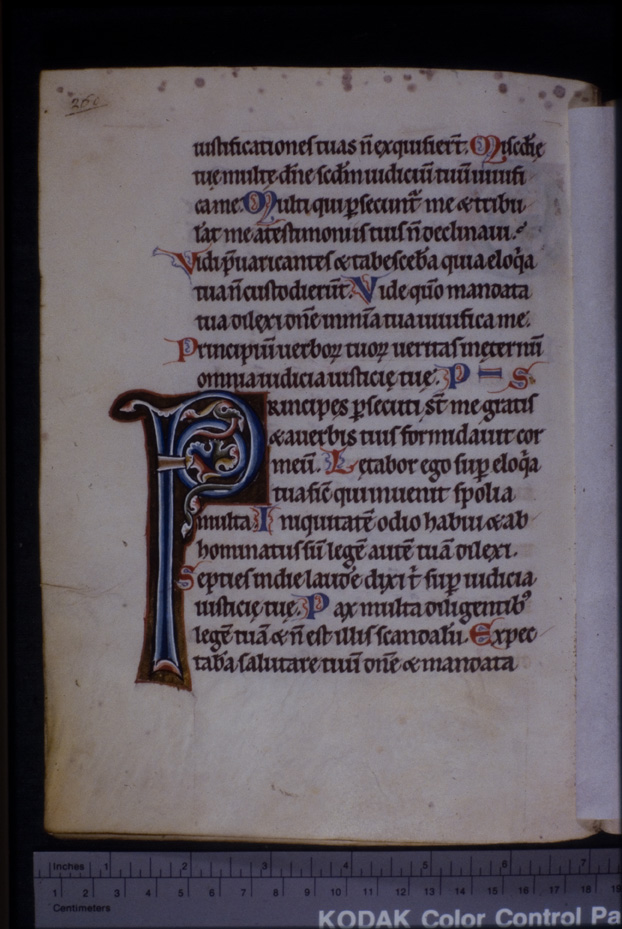 260
iustificationes tuas n̄ exquisier̄t. Misc̄dię
tuę multę dn̄e sc̄dm iudiciū tuū uiuifi
ca me. Multi qui ꝑsecunt̄ me & tribu
lāt me a testimoniis tuis n̄ declinaui.
Vidi p̄uaricantes & tabesceb̄a quia eloq̄a
tua n̄ custodier̄ut. Vide quō mandata
tua dilexi dn̄e in mia tua uiuifica me.
Principiū uerboꝝ tuoꝝ ueritas in ęternū
omnia iudicia iusticię tuę. P S.
Principes ꝑsecuti s̄t me gratis
& a uerbis tuis formidauit cor
meū. Lętabor ego sup̄ eloq̄a
tua sic̄ qui inuenit spolia
multa. Iniquitatē odio habui & ab
hominatus sū legē autē tuā dilexi.
Septies in die laudē dixi t̄ sup̄ iudicia
iusticię tuę. Pax multa diligentibꝰ
legē tuā & n̄ est illis scandalū. Expec
tab̄a salutare tuū dn̄e & mandata
Inches 1 2 3 4 5 6 7
1 2 3 4 5 6 7 8 9 10 11 12 13 14 15 16 17 18 19
Centimeters
KODAK Color Control Pa